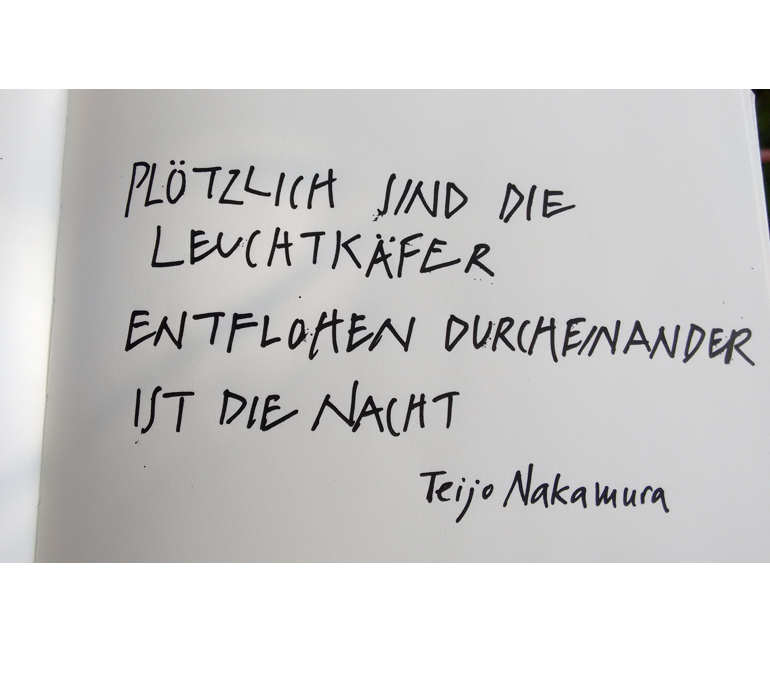 PLÖTZLICH SIND DIE
LEUCHTKÄFER
ENTFLOHEN DURCHEINANDER
IST DIE NACHT
Teijo Nakamura